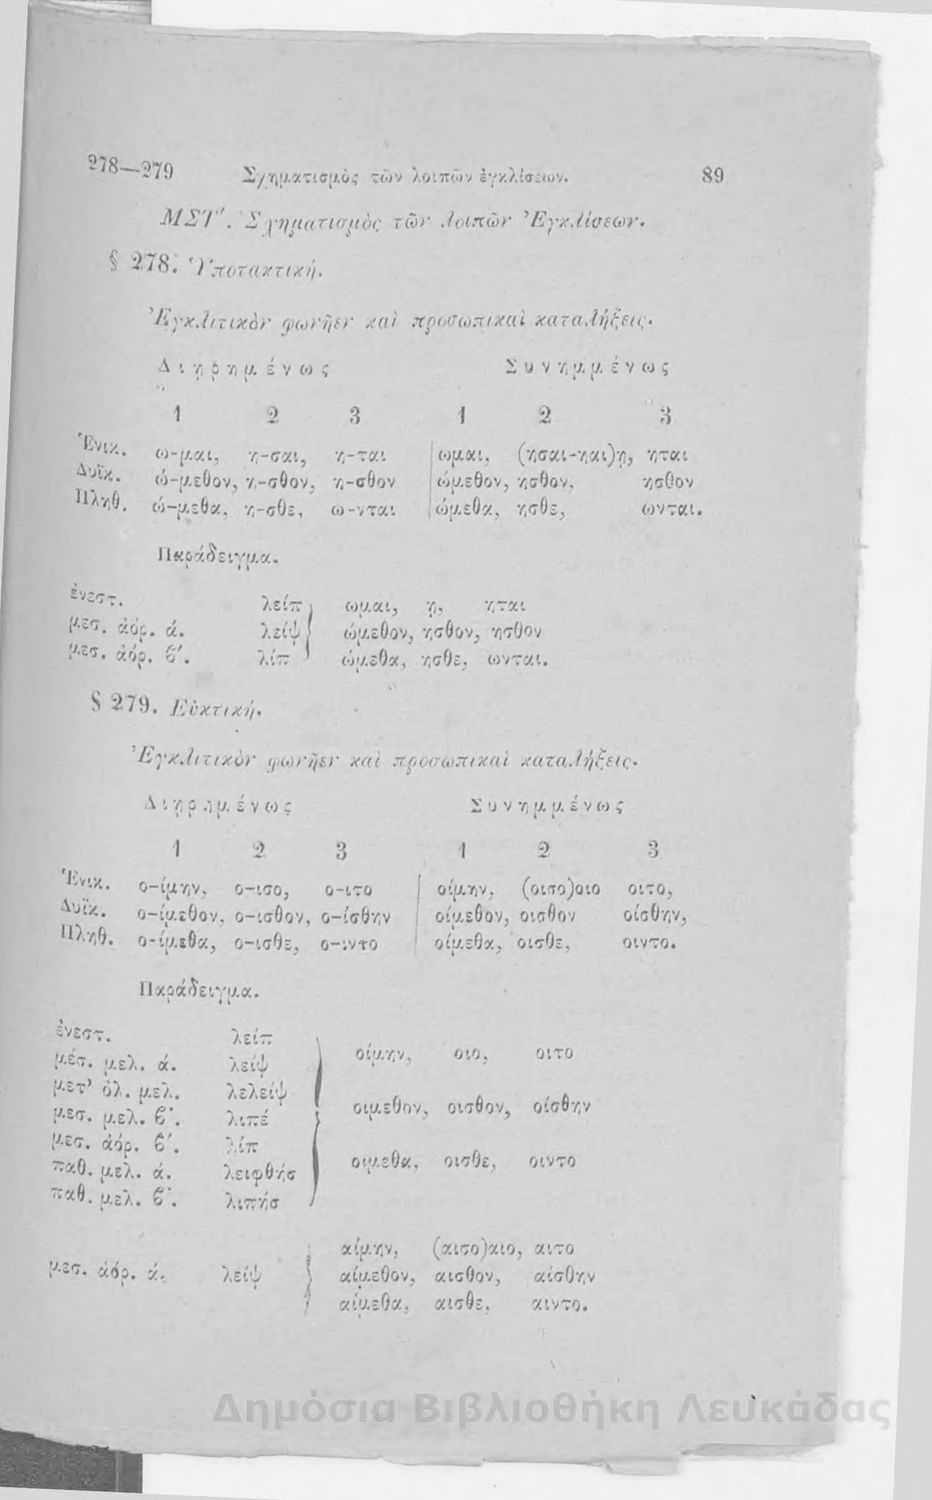 278—279 Σχηματισμὸς τῶν λοιπῶν ἐγκλίσεων. 89
ΜΣΤ'. Σχηματισμὸς τῶν λοιπῶν Ἐγκλίσεων.
§ 278. Ὑποτακτική.
Ἐγκλιτικὸν φωνῆεν καὶ προσωπικαὶ καταλήξεις.
Διῃρημένως Συνημμένως
1 2 3 1 2 3
Ἑνικ. ω-μαι, η-σαι, η-ται ωμαι, (ησαι-ηαι)ῃ, ηται
Δυϊκ. ώ-μεθον, η-σθον, η-σθον ώμεθον, ησθον, ησθον
Πληθ. ώ-μεθα, η-σθε, ω-νται ώμεθα, ησθε, ωνται.
Παράδειγμα.
ἐνεστ. λείπ ωμαι, ῃ, ηται
μεσ. ἀόρ. ά. λείψ ώμεθον, ησθον, ησθον
μεσ. ἀόρ. β'. λίπ ώμεθα, ησθε, ωνται.
§ 279. Εὐκτική.
Ἐγκλιτικὸν φωνῆεν καὶ προσωπικαὶ καταλήξεις.
Διῃρημένως Συνημμένως
1 2 3 1 2 3
Ἑνικ. ο-ίμην, ο-ισο, ο-ιτο οίμην, (οισο)οιο οιτο,
Δυϊκ. ο-ίμεθον, ο-ισθον, ο-ίσθην οίμεθον, οισθον οίσθην,
Πληθ. ο-ίμεθα, ο-ισθε, ο-ιντο οίμεθα, οισθε, οιντο.
Παράδειγμα.
ἐνεστ. λείπ
μέσ. μελ. ά. λείψ οίμην, οιο, οιτο
μετ' ὀλ. μελ. λελείψ
μεσ. μελ. β'. λιπέ οιμεθον, οισθον, οίσθην
μεσ. ἀόρ. β'. λίπ
παθ. μελ. ά. λειφθήσ οιμεθα, οισθε, οιντο
παθ. μελ. β'. λιπήσ
αίμην, (αισο)αιο, αιτο
μεσ. ἀόρ. ά. λείψ αίμεθον, αισθον, αίσθην
αίμεθα, αισθε, αιντο.
Δημόσια Βιβλιοθήκη Λευκάδας